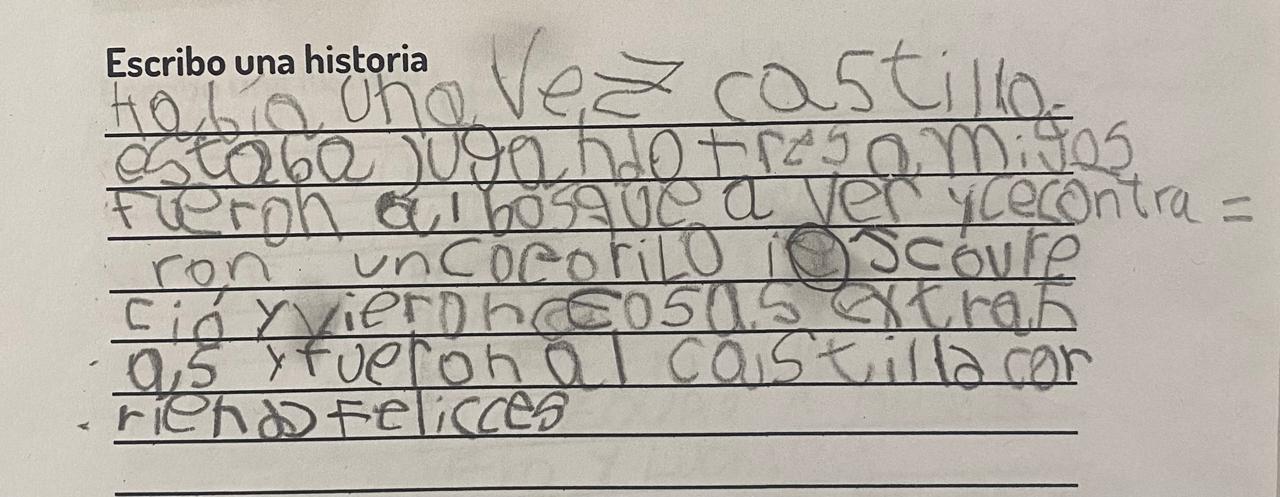 Escribo una historia
Había una Vez castillo
estaba jugando tres amigos
fueron al bosque a ver y cecontra=
ron un cocorilo i oscoure
ció y vieron cosas extrañ
as y fueron al castillo cor
riendo Felicces